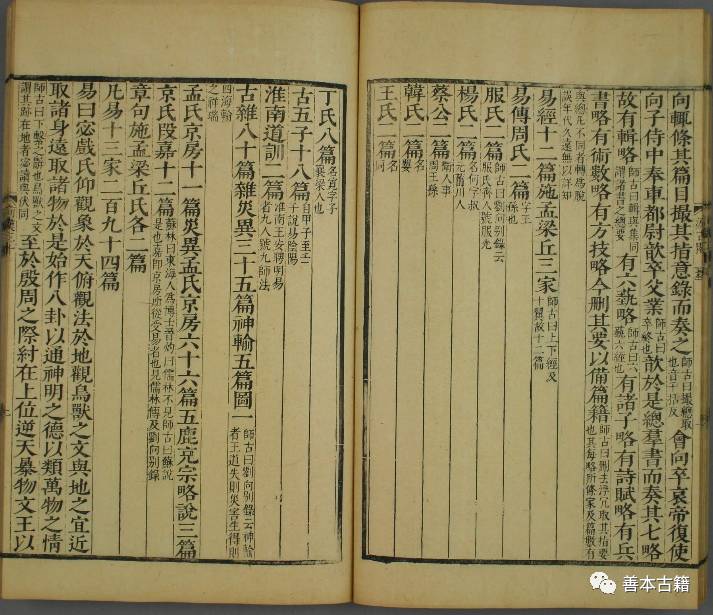 向輒條其篇目撮其指意錄而奏之師古曰撮總取也音千括反會向卒哀帝復使
向子侍中奉車都尉歆卒父業師古曰卒終也歆於是總羣書而奏其七略
故有輯略師古曰輯與集同謂諸書之總要有六埶略師古曰六藝六經也有諸子略有詩賦略有兵
書略有術數略有方技略今刪其要以備篇籍師古曰刪去浮冗取其指要也其每略所條家及篇數有
與總凡不同者轉寫脫誤年代久遠無以詳知
易經十二篇施孟梁丘三家師古曰上下經及十翼故十二篇
易傳周氏二篇字王孫也
服氏二篇師古曰劉向別錄云服氏齊人號服光
楊氏二篇名何字叔元菑川人
蔡公二篇衛人事周王孫
韓氏二篇名嬰
王氏二篇名同
丁氏八篇名寬字子襄梁人也
古五子十八篇自甲子至壬子說易陰陽
淮南道訓二篇淮南王安聘明易者九人號九師法
古雜八十篇雜災異三十五篇神輸五篇圖一師古曰劉向別錄云神輸者王道失則災害生得則
四海輸之祥瑞
孟氏京房十一篇災異孟氏京房六十六篇五鹿充宗略說三篇
京氏段嘉十二篇蘇林曰東海人為博士晉灼曰儒林不見師古曰蘇說是也嘉即京房所從受易者也見儒林傳及劉向別錄
章句施孟梁丘氏各二篇
凡易十三家二百九十四篇
易曰宓戲氏仰觀象於天俯觀法於地觀鳥獸之文與地之宜近
取諸身遠取諸物於是始作八卦以通神明之德以類萬物之情
師古曰下繫之辭也鳥獸之文謂其跡在地者宓讀與伏同至於殷周之際紂在上位逆天暴物文王以
善本古籍